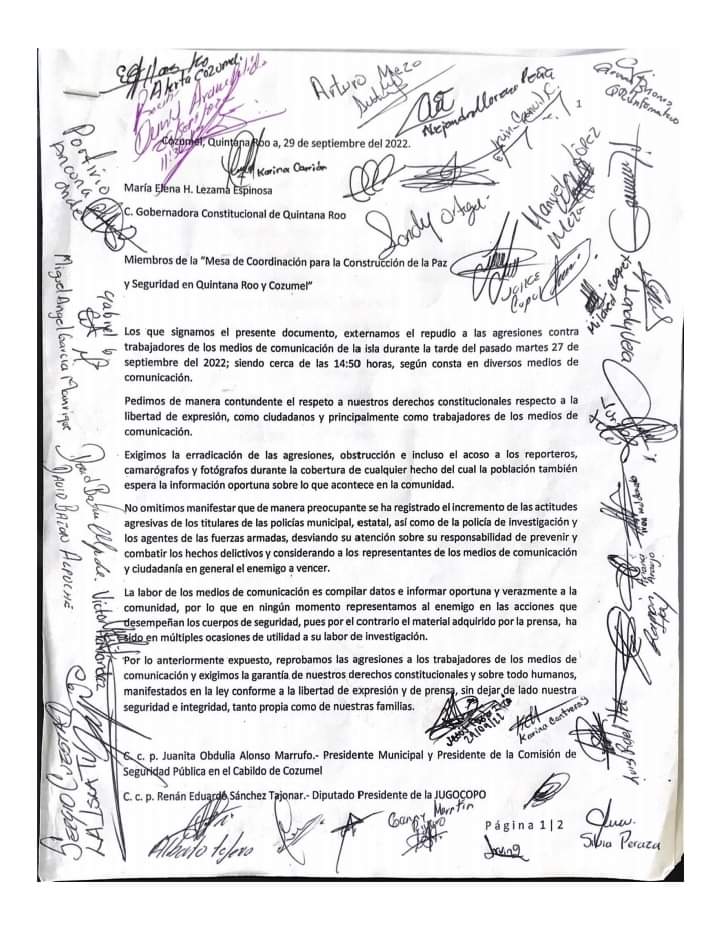 Alerta Cozumel
Arturo Mezo
Alejandra
Peña
1
Cozumel, Quintana Roo a, 29 de septiembre del 2022.
Karina Carrión
Porfirio
María Elena H. Lezama Espinosa
C. Gobernadora Constitucional de Quintana Roo
Sandy Ortega
Manuel López
Meza
Miembros de la "Mesa de Coordinación para la Construcción de la Paz
y Seguridad en Quintana Roo y Cozumel"
Jorge
Landy Vea
Gabriel
Miguel Angel Garcia Manrique
Los que signamos el presente documento, externamos el repudio a las agresiones contra
trabajadores de los medios de comunicación de la isla durante la tarde del pasado martes 27 de
septiembre del 2022; siendo cerca de las 14:50 horas, según consta en diversos medios de
comunicación.
Pedimos de manera contundente el respeto a nuestros derechos constitucionales respecto a la
libertad de expresión, como ciudadanos y principalmente como trabajadores de los medios de
comunicación.
Exigimos la erradicación de las agresiones, obstrucción e incluso el acoso a los reporteros,
camarógrafos y fotógrafos durante la cobertura de cualquier hecho del cual la población también
espera la información oportuna sobre lo que acontece en la comunidad.
No omitimos manifestar que de manera preocupante se ha registrado el incremento de las actitudes
agresivas de los titulares de las policías municipal, estatal, así como de la policía de investigación y
los agentes de las fuerzas armadas, desviando su atención sobre su responsabilidad de prevenir y
combatir los hechos delictivos y considerando a los representantes de los medios de comunicación
y ciudadanía en general el enemigo a vencer.
La labor de los medios de comunicación es compilar datos e informar oportuna y verazmente a la
comunidad, por lo que en ningún momento representamos al enemigo en las acciones que
desempeñan los cuerpos de seguridad, pues por el contrario el material adquirido por la prensa, ha
sido en múltiples ocasiones de utilidad a su labor de investigación.
Por lo anteriormente expuesto, reprobamos las agresiones a los trabajadores de los medios de
comunicación y exigimos la garantía de nuestros derechos constitucionales y sobre todo humanos,
manifestados en la ley conforme a la libertad de expresión y de prensa, sin dejar de lado nuestra
seguridad e integridad, tanto propia como de nuestras familias.
29/09/22
Karina Contreras
C. c. p. Juanita Obdulia Alonso Marrufo.- Presidente Municipal y Presidente de la Comisión de
Seguridad Pública en el Cabildo de Cozumel
C. c. p. Renán Eduardo Sánchez Tajonar.- Diputado Presidente de la JUGOCOPO
Alberto
Martin
Página 1|2
Irving
Silvia Peraza